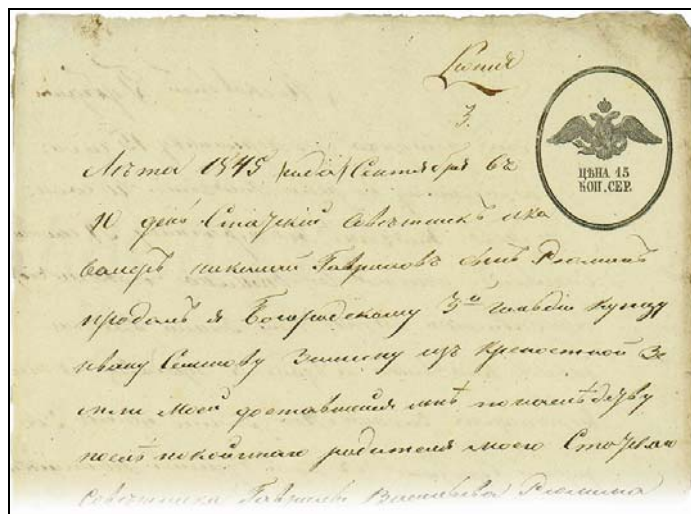 Копия
3.
ЦѢНА 15
КОП. СЕР.
Лѣта 1845 года Сентября въ
10 день Статскій Совѣтникъ и ка
валеръ николай Гавриловъ сынъ Рюминъ
продалъ я Богородскому 3й гильдіи купцу
ивану Семенову Зимину изъ крепостной зе
мли моей доставшейся мнѣ по наслѣдству
послѣ покойнаго родителя моего Статскаго
Совѣтника Гаврилы Васильева Рюмина